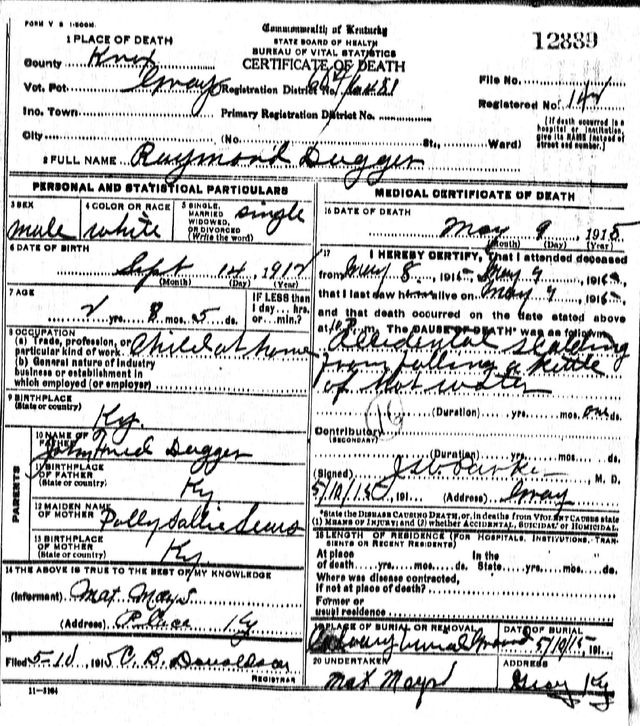 FORM V. S 1-500M.
Commonwealth of Kentucky
STATE BOARD OF HEALTH
BUREAU OF VITAL STATISTICS
CERTIFICATE OF DEATH
12889
1 PLACE OF DEATH
County Knox
Vot. Pct. Gray Registration District No.
File No.
Inc. Town Primary Registration District No.
Registered No. 142
City (No. St., Ward)
(If death occurred in a hospital or institution, give its NAME instead of street and number.)
2 FULL NAME Raymond Dugger
PERSONAL AND STATISTICAL PARTICULARS
3 SEX
male
4 COLOR OR RACE
white
5 SINGLE, MARRIED WIDOWED, OR DIVORCED (Write the word)
single
6 DATE OF BIRTH
Sept 14, 1912
(Month) (Day) (Year)
7 AGE
2 yrs. 8 mos. 25 ds.
IF LESS than 1 day... hrs. or... min.?
8 OCCUPATION
(a) Trade, profession, or particular kind of work. Child at home
(b) General nature of industry business or establishment in which employed (or employer)
9 BIRTHPLACE
(State or country) Ky.
PARENTS
10 NAME OF FATHER
John Dugger
11 BIRTHPLACE OF FATHER
(State or country) Ky
12 MAIDEN NAME OF MOTHER Polly Sallie Sears
13 BIRTHPLACE OF MOTHER
(State or country) Ky
14 THE ABOVE IS TRUE TO THE BEST OF MY KNOWLEDGE
(Informant) Mat Mays
(Address) Ky
15
Filed 5-10, 1915 C. B. Donaldson
REGISTRAR
11-3184
MEDICAL CERTIFICATE OF DEATH
16 DATE OF DEATH
May 9, 1915
(Month) (Day) (Year)
17 I HEREBY CERTIFY, That I attended deceased
from May 8, 1915, May 9, 191
that I last saw him alive on May 9, 191
and that death occurred on the date stated above
at m. The CAUSE OF DEATH* was as follows:
Accidental scalding
from falling a kettle
of hot water
(Duration) yrs. mos. one ds.
Contributory
(SECONDARY)
(Duration) yrs. mos. ds.
(Signed) M. D.
5/10/15, 191 (Address) Gray
*State the DISEASE CAUSING DEATH, or, in deaths from VIOLENT CAUSES state (1) MEANS OF INJURY; and (2) whether ACCIDENTAL, SUICIDAL or HOMICIDAL.
18 LENGTH OF RESIDENCE (FOR HOSPITALS, INSTITUTIONS, TRANSIENTS OR RECENT RESIDENTS)
At place of death yrs. mos. ds. In the State yrs. mos. ds.
Where was disease contracted, if not at place of death?
Former or usual residence
19 PLACE OF BURIAL OR REMOVAL
Calvary burial Ground
DATE OF BURIAL
5/10/15, 191
20 UNDERTAKER
Mat Mays
ADDRESS
Gray Ky